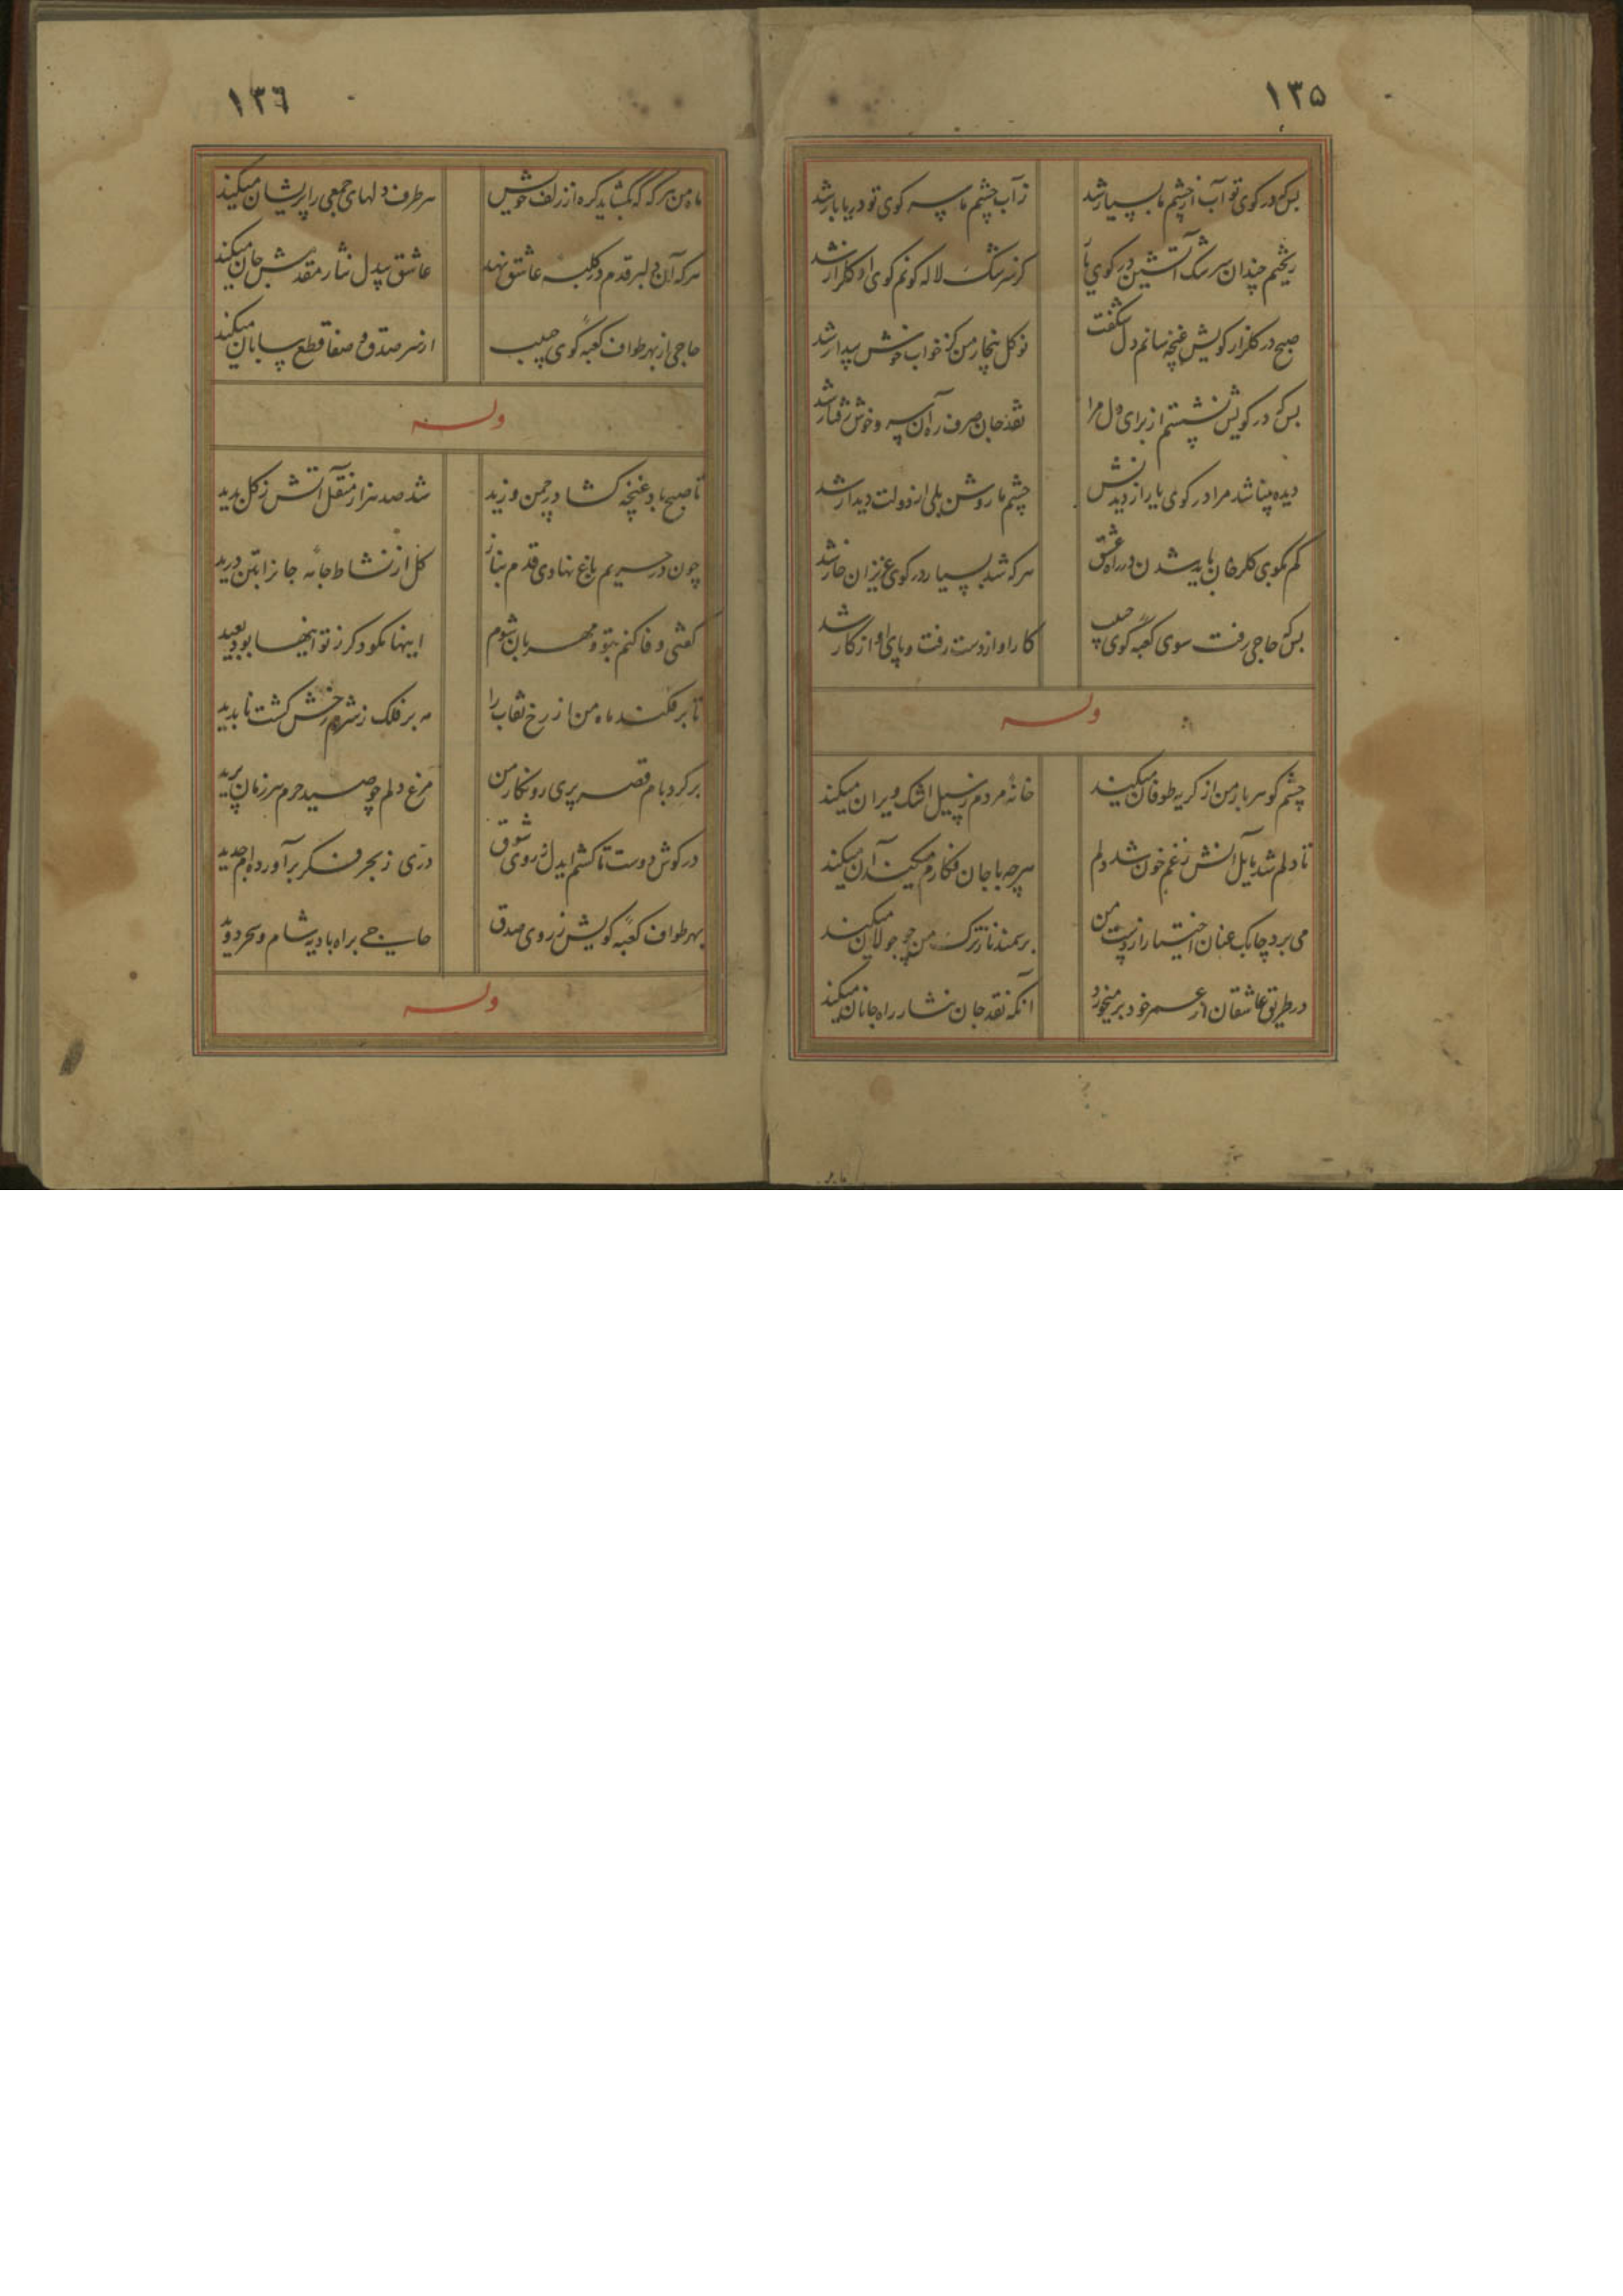 ۱۳۵
بس که در کوی تو آب از چشم ما بسیار شد
ز آب چشم ما سر کوی تو دریا بار شد
ریختم چندان سرشک آتشین در کوی یار
کز سرشک لاله کونم کوی او کلزار شد
صبح در کلزار کویش غنچه سانم دل شکفت
نو کل بیخار من کز خواب خوش بیدار شد
بس که در کویش نشستم از برای دل مرا
نقد جان صرف ره آن سرو خوش رفتار شد
دیده بینا شد مرا در کوی یار از دیدنش
چشم ما روشن بلی از دولت دیدار شد
کم بکوی کلرخان باید شدن در راه عشق
هر که شد بسیار در کوی عزیزان خار شد
بس که حاجی رفت سوی کعبه کوی حبیب
کار او از دست رفت و پای او از کار شد
وله
چشم کوهر بار من از کریه طوفان میکند
خانه مردم ز سیل اشک ویران میکند
تا دلم شد مایل آتش ز غم خون شد دلم
هرچه با جان فکارم میکند آن میکند
می برد چابک عنان اختیار از دست من
بر سمند ناز ترک من چو جولان میکند
در طریق عاشقان از عمر خود بر میخورد
آنکه نقد جان نثار راه جانان میکند
۱۳۶
ماه من هر که که بکشاید کره از زلف خویش
هر طرف دلهای جمعی را پریشان میکند
هر که آن دلبر قدم در کلبه عاشق نهد
عاشق بیدل نثار مقدمش جان میکند
حاجی از بهر طواف کعبه کوی حبیب
از سر صدق و صفا قطع بیابان میکند
وله
تا صبح باد غنچه کشا در چمن وزید
شد صد هزار منقل آتش ز کل پدید
چون در حریم باغ نهادی قدم بناز
کل از نشاط جامه جانرا بتن درید
کفتی وفا کنم بتو و مهربان شوم
اینها نکو دکر ز تو اینها بود بعید
تا برفکند ماه من از رخ نقاب را
مه بر فلک ز شرم رخش کشت ناپدید
بر کرد بام قصر پری رو نکار من
مرغ دلم چو صید حرم هر زمان پرید
در کوش دوست تا کشم ایدل ز روی شوق
دری ز بحر فکر برآورده ام جدید
بهر طواف کعبه کویش ز روی صدق
حاجی براه بادیه شام و سحر دوید
وله